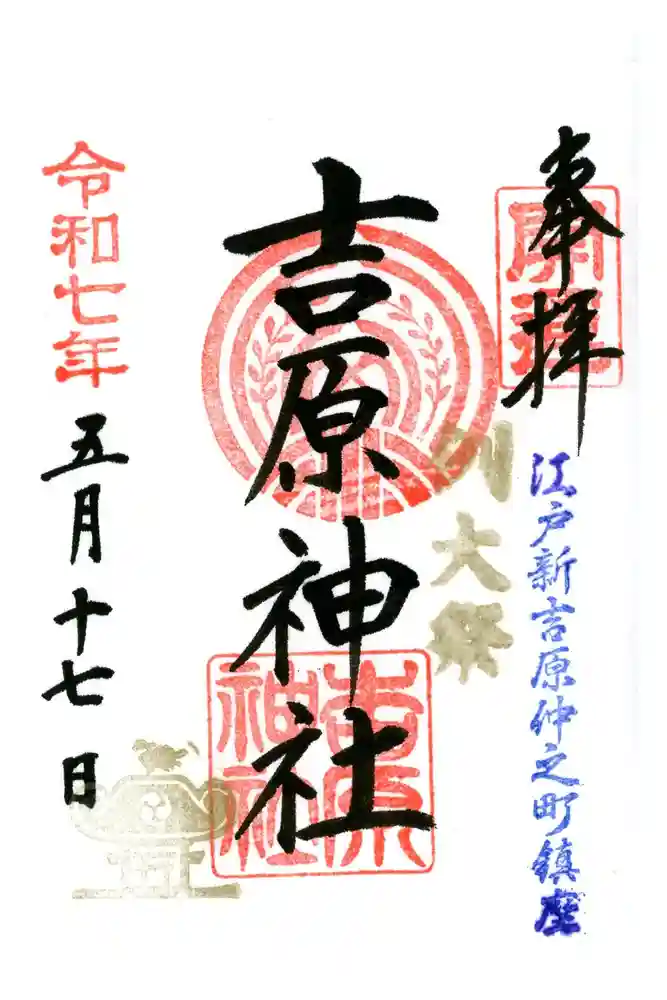 奉拝
開運
江戸新吉原仲之町鎮座
例大祭
吉原神社
吉原神社
令和七年五月十七日